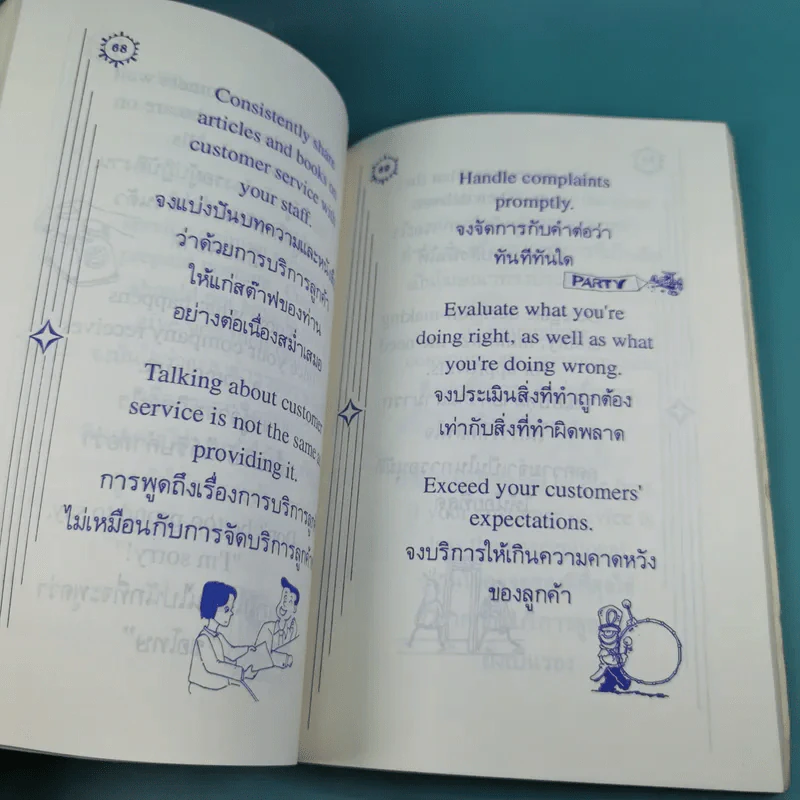 68
Consistently share
articles and books on
customer service with
your staff.
จงแบ่งปันบทความและหนังสือ
ว่าด้วยการบริการลูกค้า
ให้แก่สต๊าฟของท่าน
อย่างต่อเนื่องสม่ำเสมอ
Talking about customer
service is not the same as
providing it.
การพูดถึงเรื่องการบริการลูกค้า
ไม่เหมือนกับการจัดบริการลูกค้า
69
Handle complaints
promptly.
จงจัดการกับคำต่อว่า
ทันทีทันใด
PARTY
Evaluate what you're
doing right, as well as what
you're doing wrong.
จงประเมินสิ่งที่ทำถูกต้อง
เท่ากับสิ่งที่ทำผิดพลาด
Exceed your customers'
expectations.
จงบริการให้เกินความคาดหวัง
ของลูกค้า